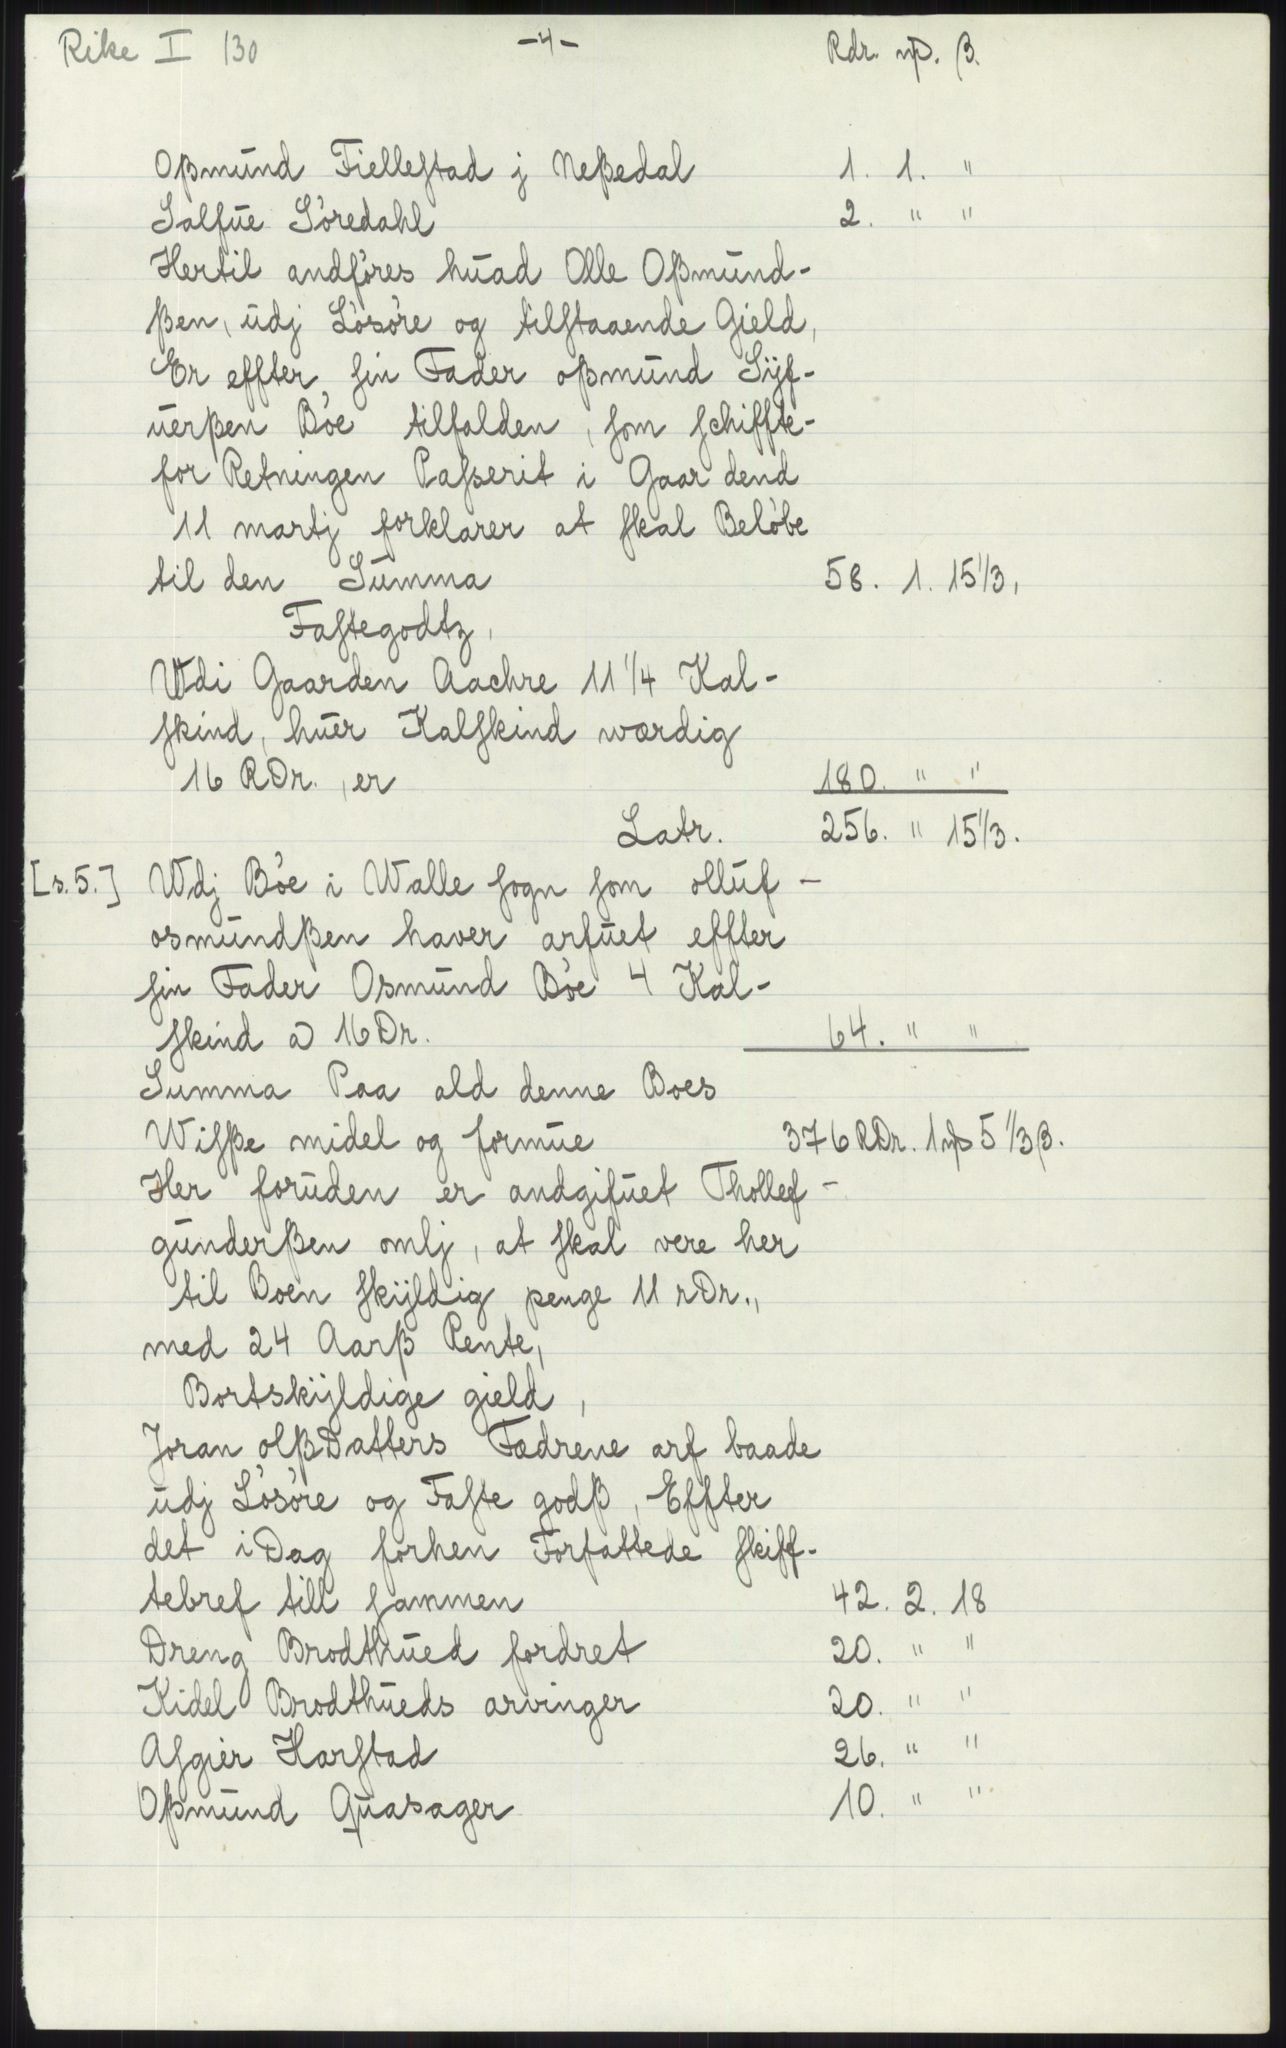 Rike I 130 -4- Rdr. mþ. β.
Oßmund Fiellestad j Neßedal 1. 1. "
Salfue Söredahl 2. " "
Hertil andföres huad Olle Oßmund-
ßen, udj Lösöre og tilstaaende Gield,
Er effter sin Fader oßmund Sÿf-
uerßen Böe tilfalden, som schiffte-
for Retningen Passerit i Gaar dend
11 martj forklarer at skal Belöbe
til den Summa 58. 1. 15 1/3,
Fastegodtz,
Wdi Gaarden Aachre 11 1/4 Kal-
skind, huer Kalfskind wordig
16 RDr., er 180. " "
Latr. 256. " 15 1/3.
[s. 5.] Wdj Böe i Walle sogn som olluf -
osmundßen haver arfuet effter
sin Fader Osmund Böe 4 Kal-
skind a 16 Dr. 64. " "
Summa Paa ald denne Boes
Wisße midel og formue 376 RDr. 1 mþ 5 1/3 β.
Her foruden er andgifuet Thollef -
gunderßen omlj, at skal vere her
til Boen skÿldig penge 11 rDr.,
med 24 Aarß Rente,
Bortskÿldige gield,
Joran olßDatters Fædrene arf baade
udj Lösöre og Faste godß, Effter
det i Dag forhen Forfattede skiff-
tebref till sammen 42. 2. 18
Dreng Brodthued fordret 20. " "
Kidel Brodthueds arvinger 20. " "
Asgier Harstad 26. " "
Oßmund Quasager 10. " "